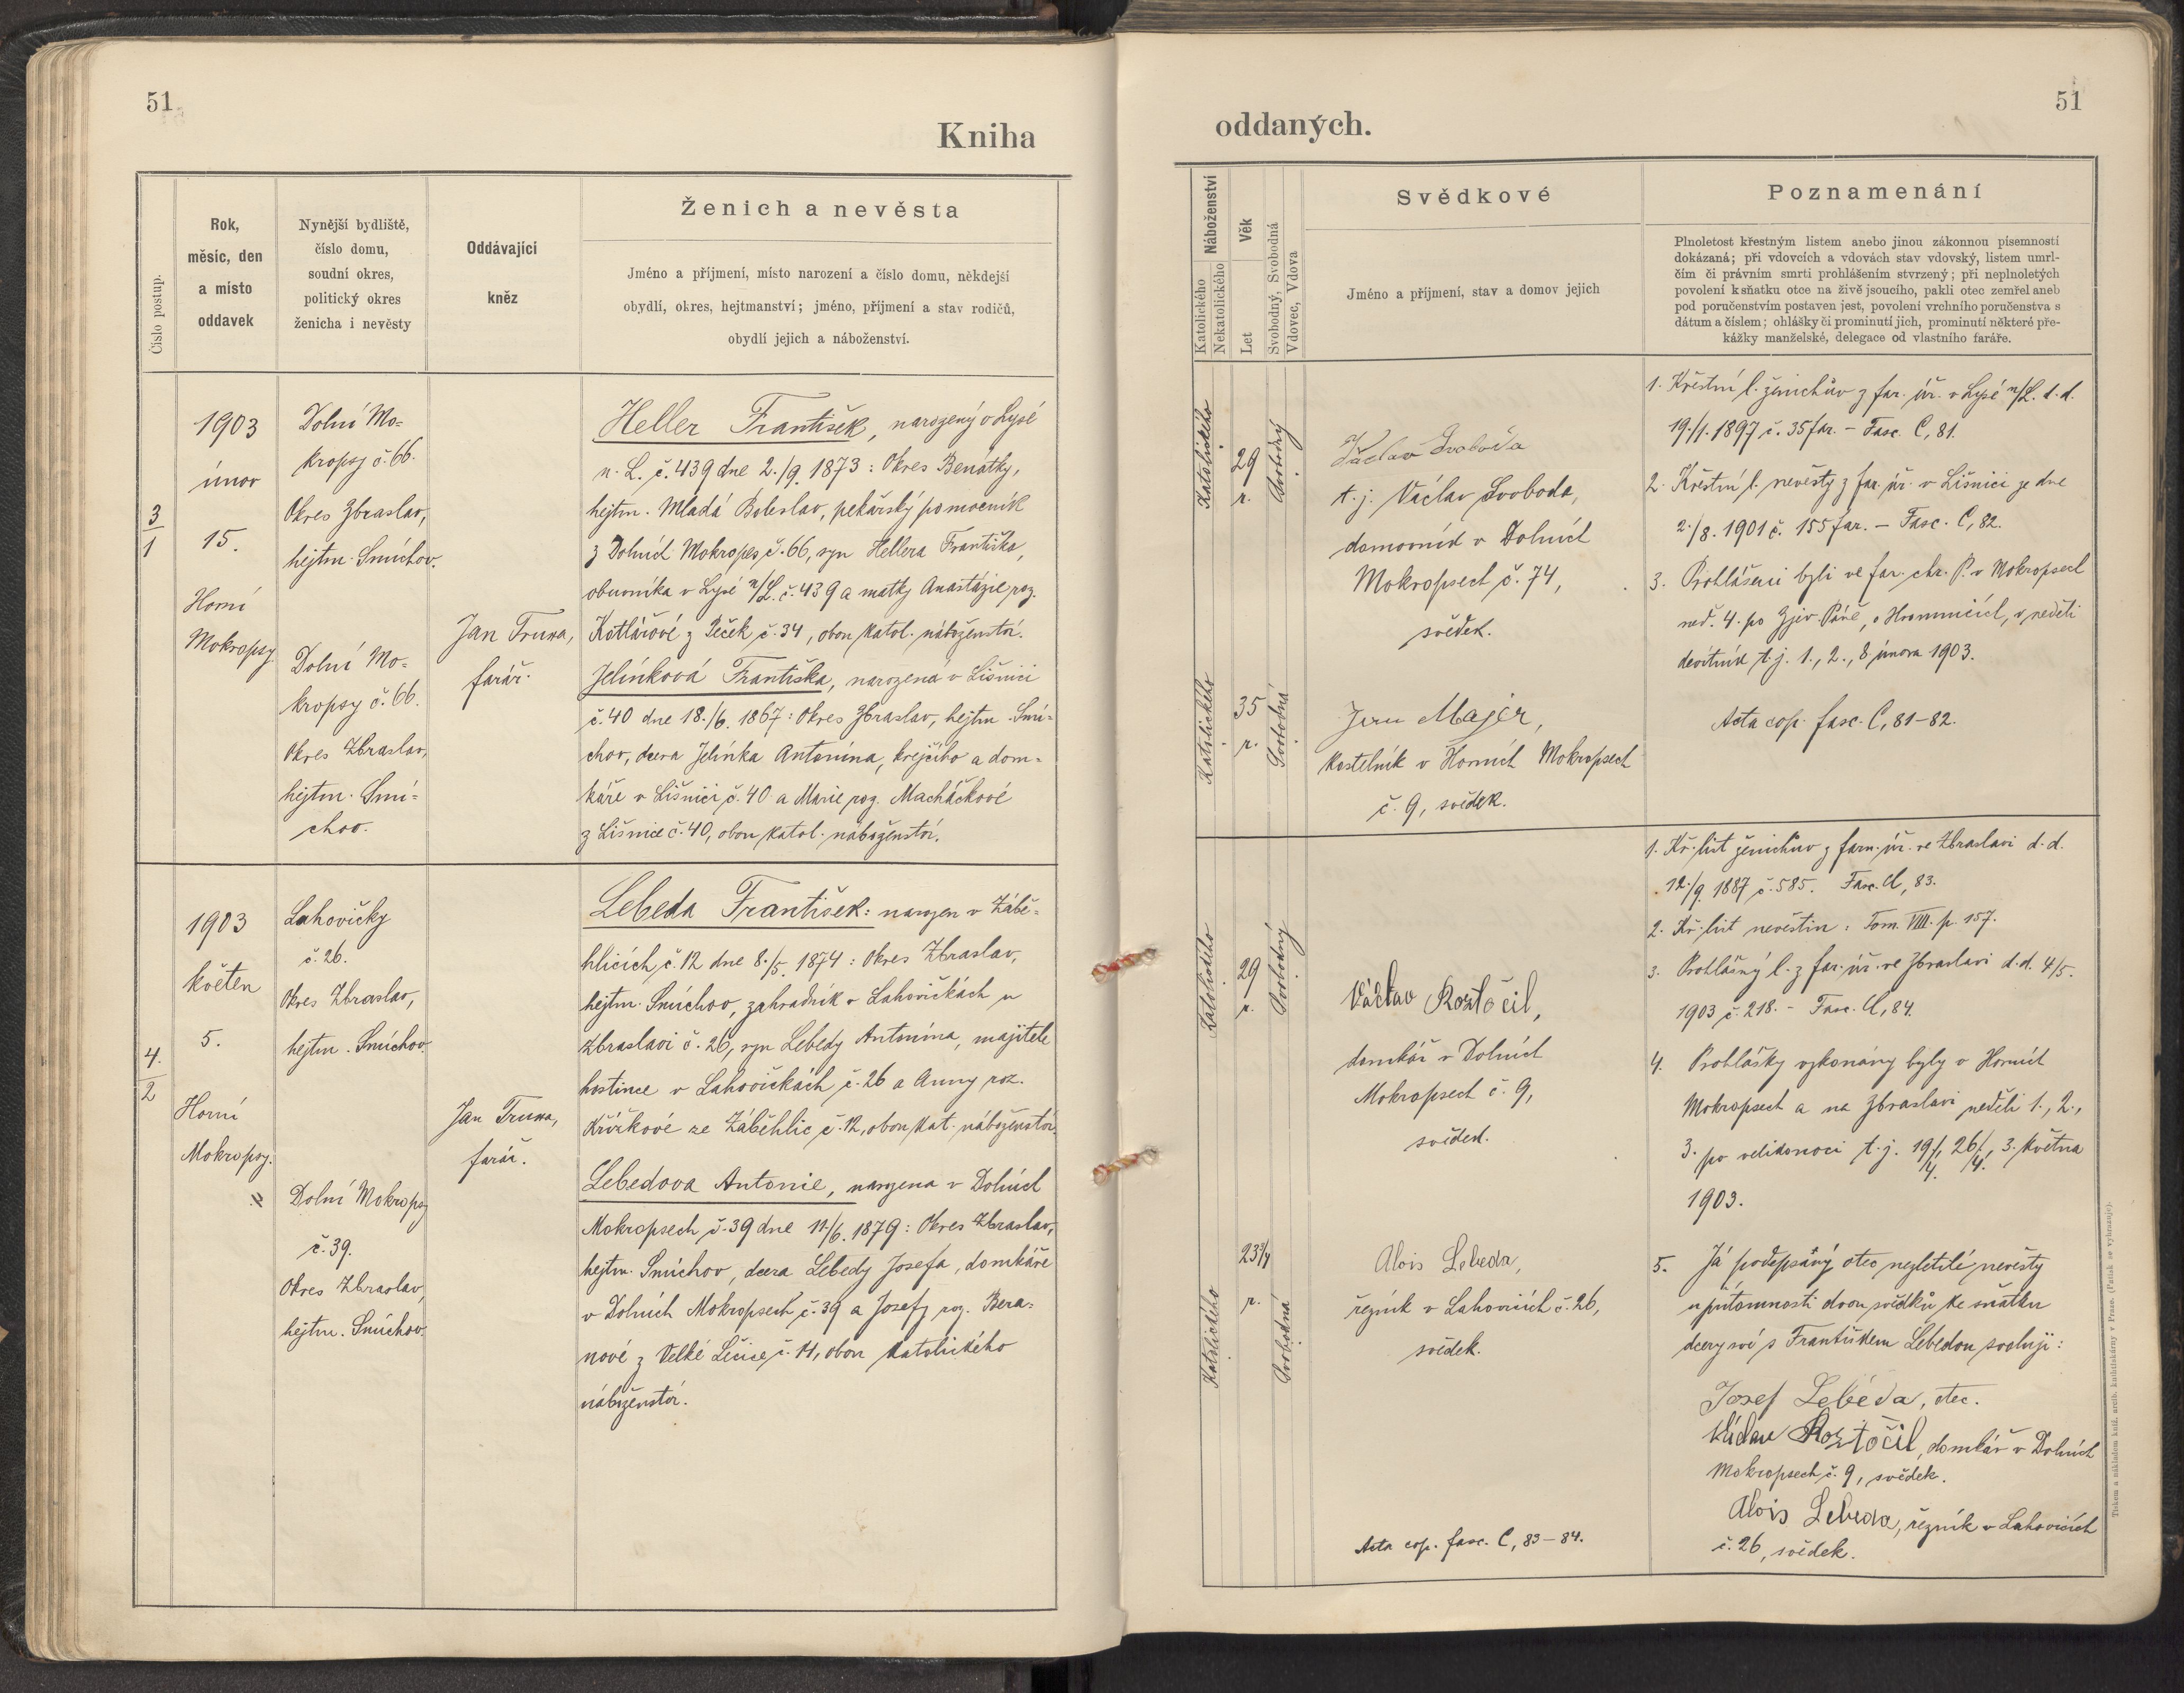 51
Kniha
Číslo postup.
Rok,
měsíc, den
a místo
oddavek
Nynější bydliště,
číslo domu,
soudní okres,
politický okres
ženicha i nevěsty
Oddávající
kněz
Ženich a nevěsta
Jméno a příjmení, místo narození a číslo domu, někdejší
obydlí, okres, hejtmanství; jméno, příjmení a stav rodičů,
obydlí jejich a náboženství.
3
1
1903
únor
15.
Horní
Mokropsy
Dolní Mo-
kropsy č. 66.
Okres Zbraslav,
hejtm. Smíchov.
Dolní Mo-
kropsy č. 66.
Okres Zbraslav,
hejtm. Smí-
chov.
Jan Truxa,
farář.
Heller František, narozený v Lysé
n. L. č. 439 dne 2./9. 1873: Okres Benátky,
hejtm. Mladá Boleslav, pekařský pomocník
z Dolních Mokropes č. 66, syn Hellera Františka,
obuvníka v Lysé n/L. č. 439 a matky Anastázie roz.
Kotlárové z Peček č. 34, obou katol. náboženství.
Jelínková Františka, narozená v Líšnici
č. 40 dne 18./6. 1867: Okres Zbraslav, hejtm. Smí-
chov, dcera Jelínka Antonína, krejčího a dom-
káře v Líšnici č. 40 a Marie roz. Macháčkové
z Líšnice č. 40, obou katol. náboženství.
4.
2
1903
květen
5.
Horní
Mokropsy.
Lahovičky
č. 26.
Okres Zbraslav,
hejtm. Smíchov.
Dolní Mokropsy
č. 39.
Okres Zbraslav,
hejtm. Smíchov.
Jan Truxa,
farář.
Lebeda František: narozen v Zábě-
hlicích č. 12 dne 8./5. 1874: Okres Zbraslav,
hejtm. Smíchov, zahradník v Lahovičkách u
Zbraslavi č. 26, syn Lebedy Antonína, majitele
hostince v Lahovičkách č. 26 a Anny roz.
Křížkové ze Záběhlic č. 12, obou kat. náboženství.
Lebedova Antonie, narozena v Dolních
Mokropsech č. 39 dne 11/6. 1879: Okres Zbraslav,
hejtm. Smíchov, dcera Lebedy Josefa, domkáře
v Dolních Mokropsech č. 39 a Josefy roz. Bera-
nové z Velké Lečice č. 11, obou katolického
náboženství.
51
oddaných.
Náboženství
Katolického
Nekatolického
Věk
Let
Svobodný, Svobodná
Vdovec, Vdova
Svědkové
Jméno a příjmení, stav a domov jejich
Poznamenání
Plnoletost křestným listem anebo jinou zákonnou písemností
dokázaná; při vdovcích a vdovách stav vdovský, listem umrl-
čím či právním smrti prohlášením stvrzený; při neplnoletých
povolení k sňatku otce na živě jsoucího, pakli otec zemřel aneb
pod poručenstvím postaven jest, povolení vrchního poručenstva s
dátum a číslem; ohlášky či prominutí jich, prominutí některé pře-
kážky manželské, delegace od vlastního faráře.
Katolického
29
r.
Svobodný
Katolického
35
r.
Svobodná
Václav Svoboda
t. j. Václav Svoboda,
domovník v Dolních
Mokropsech č. 74,
svědek.
Jan Majer,
kostelník v Horních Mokropsech
č. 9, svědek.
1. Křestní l. ženichův z far. úř. v Lysé n/L. d. d.
19./1. 1897 č. 35 far. - Fasc. C, 81.
2. Křestní l. nevěsty z far. úř. v Líšnici ze dne
2./8. 1901 č. 155 far. - Fasc. C, 82.
3. Prohlášeni byli ve far. chr. P. v Mokropsech
ned. 4. po Zjev. Páně, o Hromnicích, v neděli
devítník t. j. 1., 2., 8 února 1903.
Acta cop. fasc. C, 81-82.
Katolického
29
r.
Svobodný
Katolického
23 3/4
r.
Svobodná
Václav Roztočil,
domkář v Dolních
Mokropsech č. 9,
svědek.
Alois Lebeda,
řezník v Lahovicích č. 26,
svědek.
Acta cop. fasc. C, 83-84.
1. Kř. list ženichův z farn. úř. ve Zbraslavi d. d.
12./9. 1887 č. 585. Fasc. C, 83.
2. Kř. list nevěstin: Tom. VIII. p. 157.
3. Prohlášný l. z far. úř. ve Zbraslavi d. d. 4/5.
1903 č. 218. - Fasc. C, 84.
4. Prohlášky vykonány byly v Horních
Mokropsech a na Zbraslavi neděli 1., 2.,
3. po velikonoci t. j. 19/4., 26/4., 3. května
1903.
5. Já podepsaný otec nezletilé nevěsty
u přítomnosti dvou svědků ke sňatku
dcery své s Františkem Lebedou svoluji:
Josef Lebeda, otec.
Václav Roztočil, domkář v Dolních
Mokropsech č. 9, svědek.
Alois Lebeda, řezník v Lahovicích
č. 26, svědek.